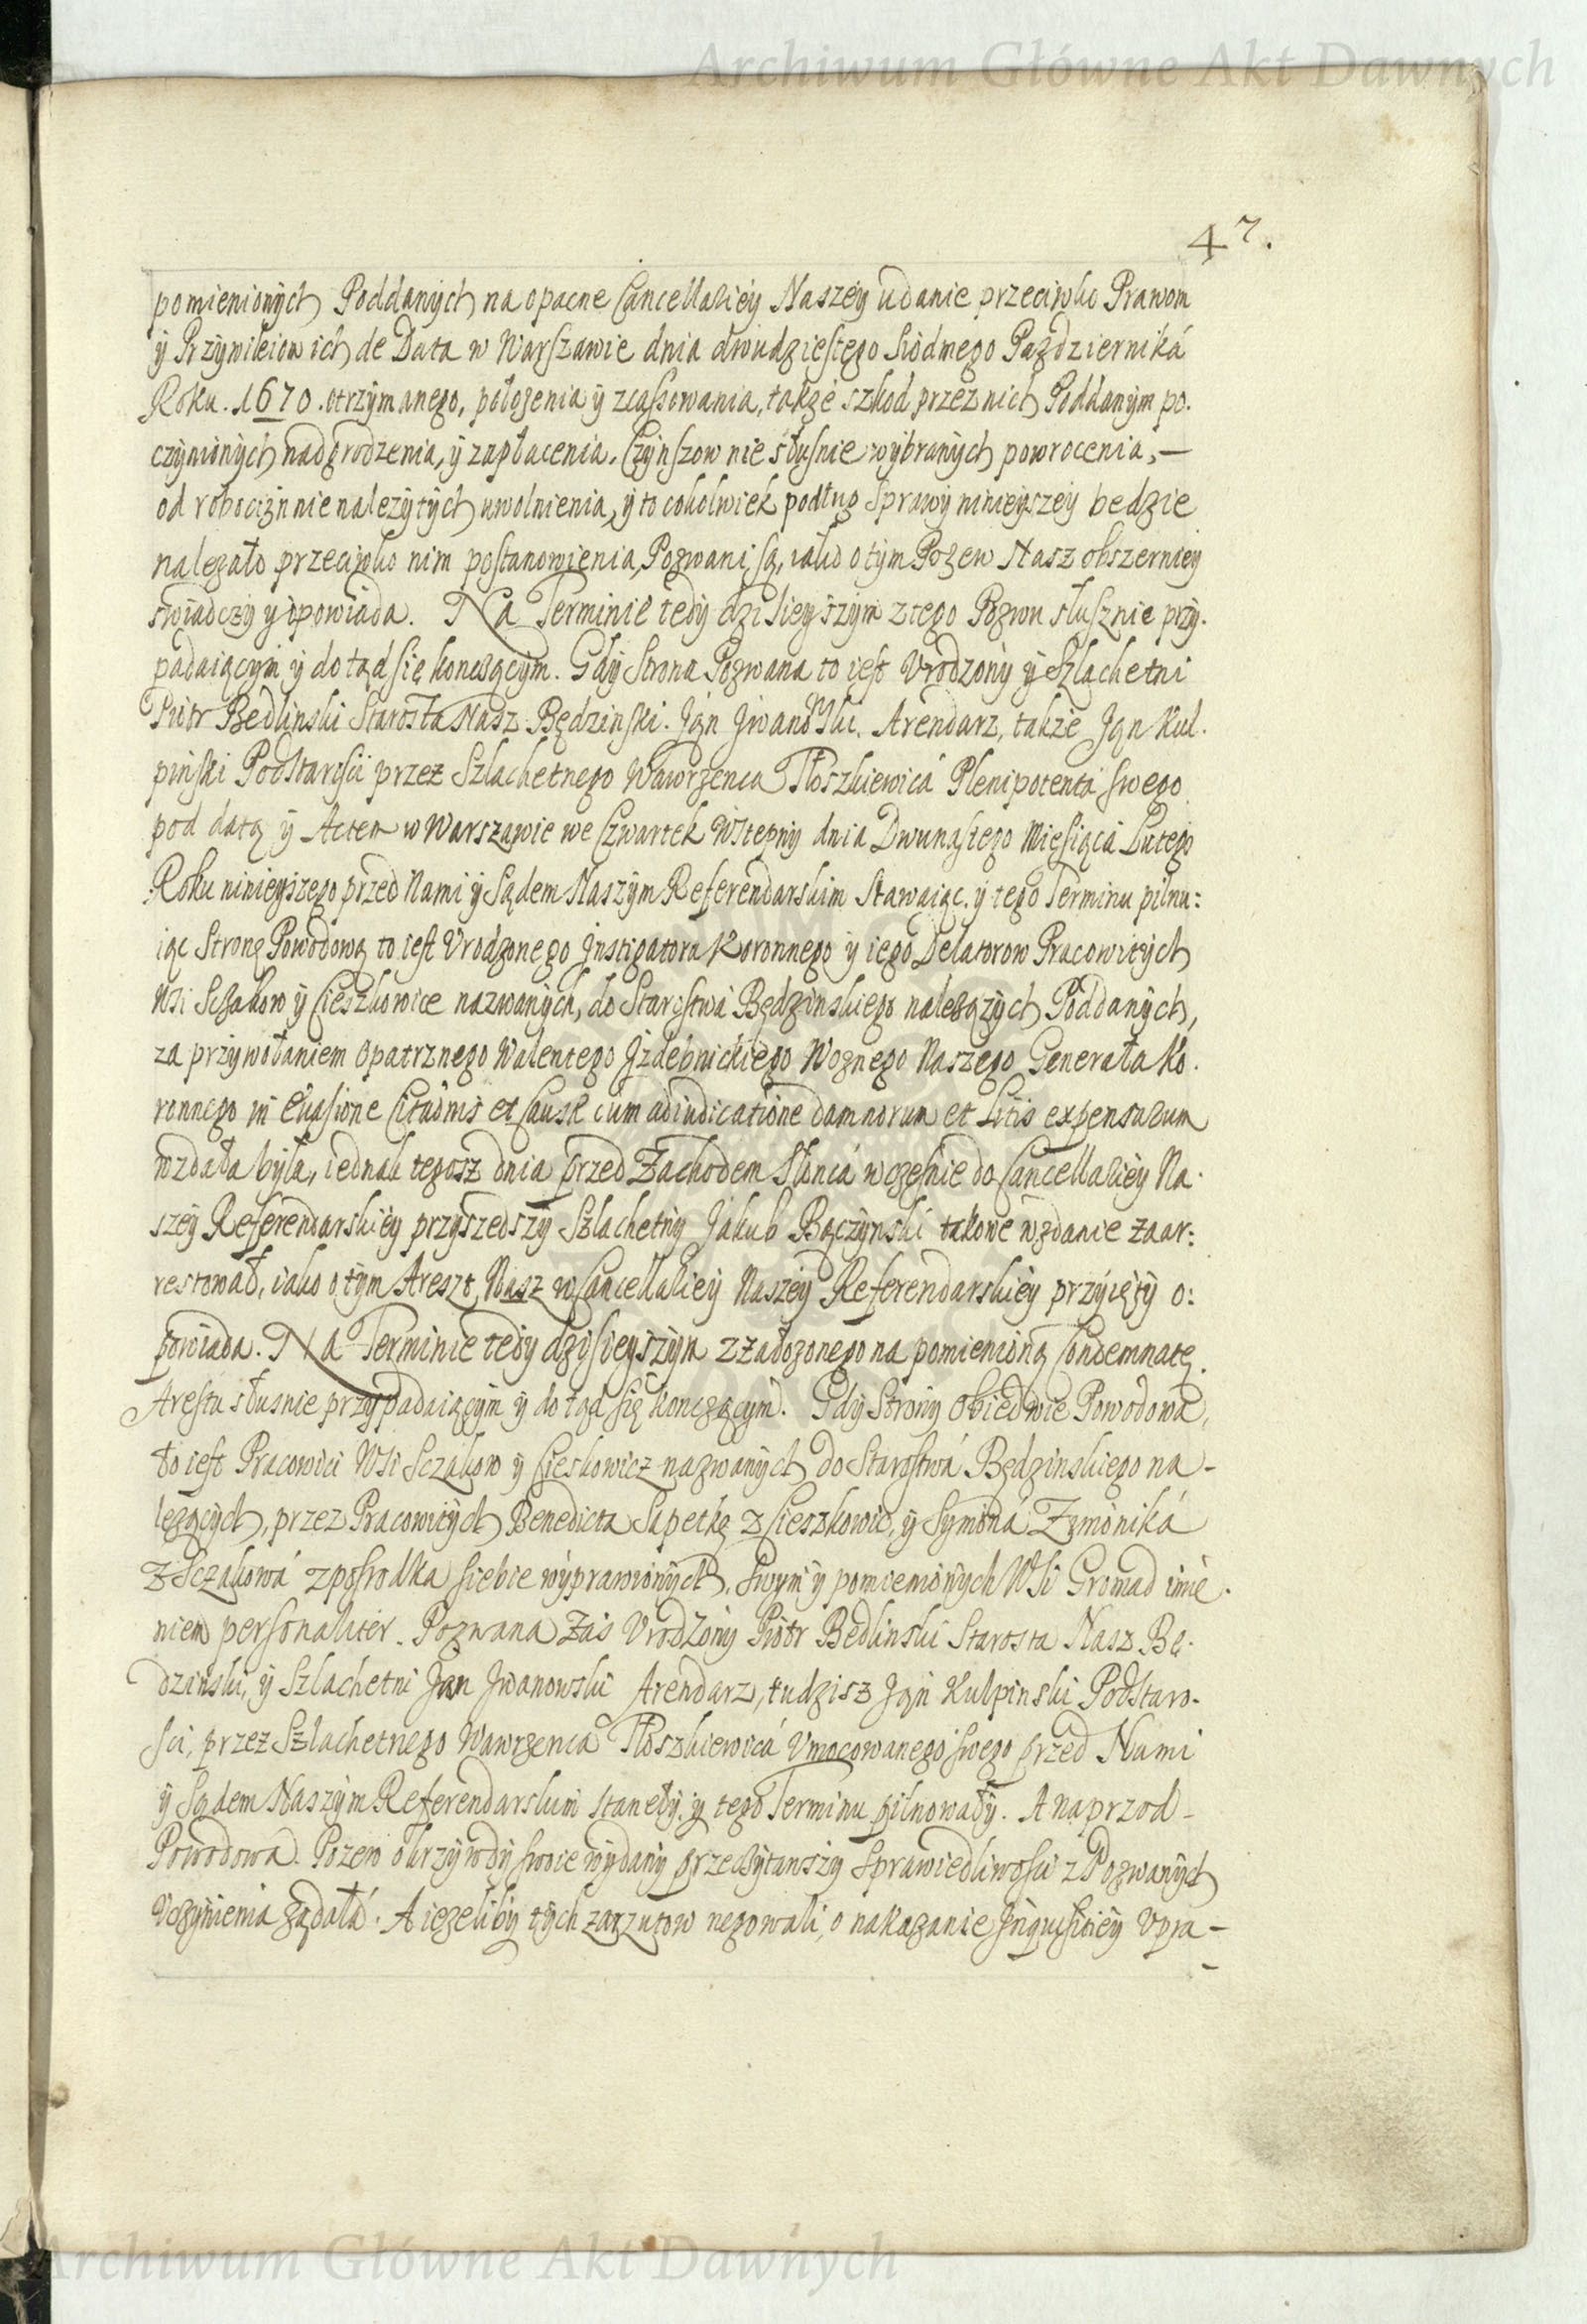 Archiwum Główne Akt Dawnych
47.
pomienionych Poddanych na opacne Cancellariey Naszey udanie przeciwko Prawom
y Przywileiow ich de Data w Warszawie dnia dwudziestego Siodmego Pazdzierniká
Roku. 1670. otrzymanego, położenia y zcassowania, także szkod przez nich Poddanym po.
czynionych nadgrodzenia, y zapłacenia, Czynszow nie słusnie wybranych powrocenia, —
od robocizn nie nalezytych uwolnienia, y to cokolwiek podług Sprawy ninieyszey bedzie
nalezało przeciwko nim postanowienia, Pozwani są, iako o tym Pozew Nasz obszerniey
swiadczy y opowiada. Na Terminie tedy dzisieyszym z tego Pozwu słusznie przy.
padaiącym y do tąd się konczącym. Gdy Strona Pozwana to iest Vrodzony y Szlachetni
Piotr Bedlinski Starosta Nasz Będzinski. Jan Jwanowski. Arendarz, także Jan Kul.
pinski Podstarosci przez Szlachetnego Wawrzenca Tłoszkiewicá Plenipotenta swego
pod datą y Actem w Warszawie we Czwartek Wstepny dnia Dwunastego Miesiąca Lutego
Roku ninieyszego przed Nami y Sądem Naszym Referendarskim Stawaiąc. y tego Terminu pilnu:
iąc Stronę Powodową to iest Vrodzonego Jnstigatora Koronnego y iego Delatorow Pracowitych
Wsi Sczakow y Cieszkowice nazwanych, do Starostwá Będzinskiego nalezązych Poddanych,
za przywołaniem Opatrznego Walentego Jzdebnickiego Woznego Naszego Generała Ko.
ronnego in Evasione Citaonis et Causæ cum adiudicatione damnorum et Litis expensarum
wzdała była, iednak tegosz dnia przed Zachodem Słoncá wczesnie do Cancellariey Na.
szey Referendarskiey przyszedszy Szlachetny Jakub Bączynski takowe wzdanie zaar:
restował, iako o tym Areszt Nasz w Cancellariey Naszey Referendarskiey przyięty o:
powiada. Na Terminie tedy dzysieyszym z założonego na pomienioną Condemnatę.
Arestu słusnie przypadaiącym y do tąd się konczącym. Gdy Strony Obiedwie Powodowa,
to iest Pracowici Wsi Sczakow y Cieskowicz nazwanych do Starostwá Będzinskiego na-
lezących, przez Pracowitych Benedicta Sapetkę z Cieszkowic, y Symoná Zymoniká
z Sczakowá zposrodka siebie wyprawionych, Swym y pomienionych Wsi Gromad imie.
niem personaliter. Pozwana Zas Vrodzony Piotr Bedlinski Starosta Nasz Bę.
dzinski, y Szlachetni Jan Jwanowski Arendarz, tudzisz Jan Kulpinski Podstaro.
sci, przez Szlachetnego Wawrzenca Tłoszkiewicá Vmocowanego swego przed Nami
y Sądem Naszym Referendarskim staneły, y tego Terminu pilnowały. A naprzod-
Powodowa. Pozew o krzywdy swoie wydany przeczytawszy Sprawiedliwosci z Pozwanych
Vczynienia ządałá. A iezeliby tych zarzutow negowali, o nakazanie Jnquisitiey Vpra-
Archiwum Główne Akt Dawnych